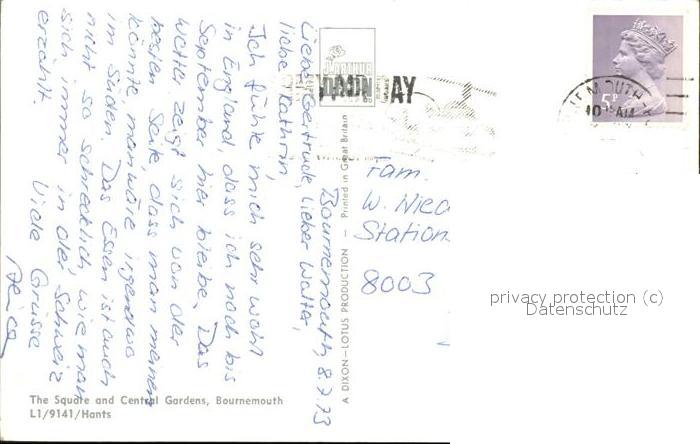 Bournemouth, 8.7.73
Liebe Gertrud, lieber Walter,
liebe Kathrin,
Ich fühle mich sehr wohl
in England, dass ich noch bis
September hier bleibe. Das
Wetter zeigt sich von der
besten Seite, dass man meinen
könnte, man wäre irgendwo
im Süden. Das Essen ist auch
nicht so schrecklich, wie man
sich immer in der Schweiz
erzählt.
Viele Grüsse
Fam.
W. Nied
Station
8003
A DIXON-LOTUS PRODUCTION — Printed in Great Britain
The Square and Central Gardens, Bournemouth
L1/9141/Hants
5P
privacy protection (c)
Datenschutz